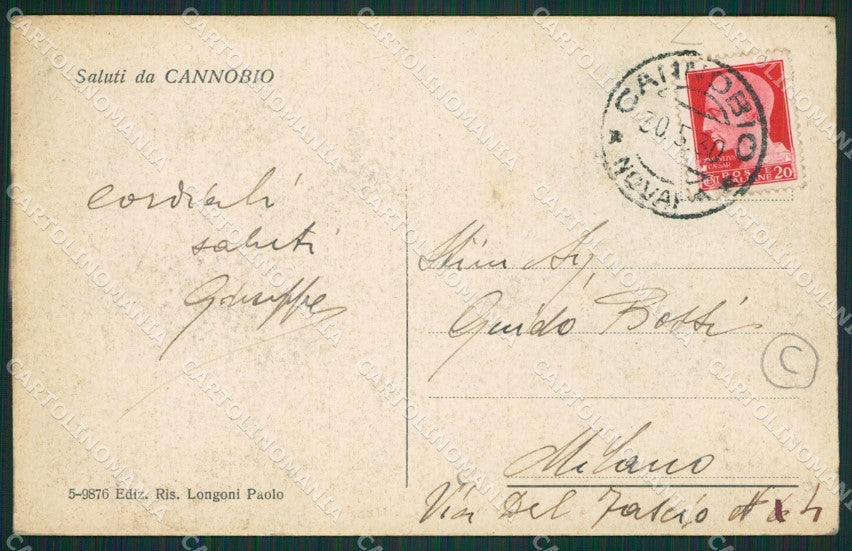 Saluti da CANNOBIO
cordiali
saluti
Giuseppe
5-9876 Ediz. Ris. Longoni Paolo
CANNOBIO
30.5.40
NOVARA
POSTE
ITALIANE
CENT 20
Stim Sig,
Guido Bossi
Milano
Via del Fascio N 4
C
CARTOLINOMANIA